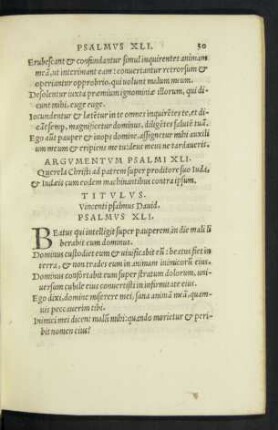 PSALMVS XLI. 30
Erubescant & confundantur simul inquirentes animam
meã, ut interimant eam: convertantur retrorsum &
operiantur opprobrio, qui volunt malum meum.
Desolentur iuxta præmium ignominiæ illorum, qui di
cunt mihi, euge euge.
Iocundentur & lætẽtur in te omnes inquirẽtes te, et di
cãt semp, magnificetur dominus, diligẽtes salutẽ tuã.
Ego aũt pauper & inops domine, assignetur mihi auxili
um meum & eripiens me tu, deus meus ne tardaverit.
ARGVMENTVM PSALMI XLI.
Querela Christi ad patrem super proditore suo Iuda,
& Iudæis cum eodem machinantibus contra ipsum.
TITVLVS.
Vincenti psalmus David.
PSALMVS XLI.
BEatus qui intelligit super pauperem, in die mali li
berabit eum dominus.
Dominus custodiet eum & vivificabit eũ: beatus fiet in
terra, & non trades eum in animam inimicorũ eius.
Dominus confortabit eum super stratum dolorum, uni-
versum cubile eius convertisti in infirmitate eius.
Ego dixi, domine miserere mei, sana animã meã, quam-
vis peccaverim tibi.
Inimici mei dicent malũ mihi: quando morietur & peri-
bit nomen eius?